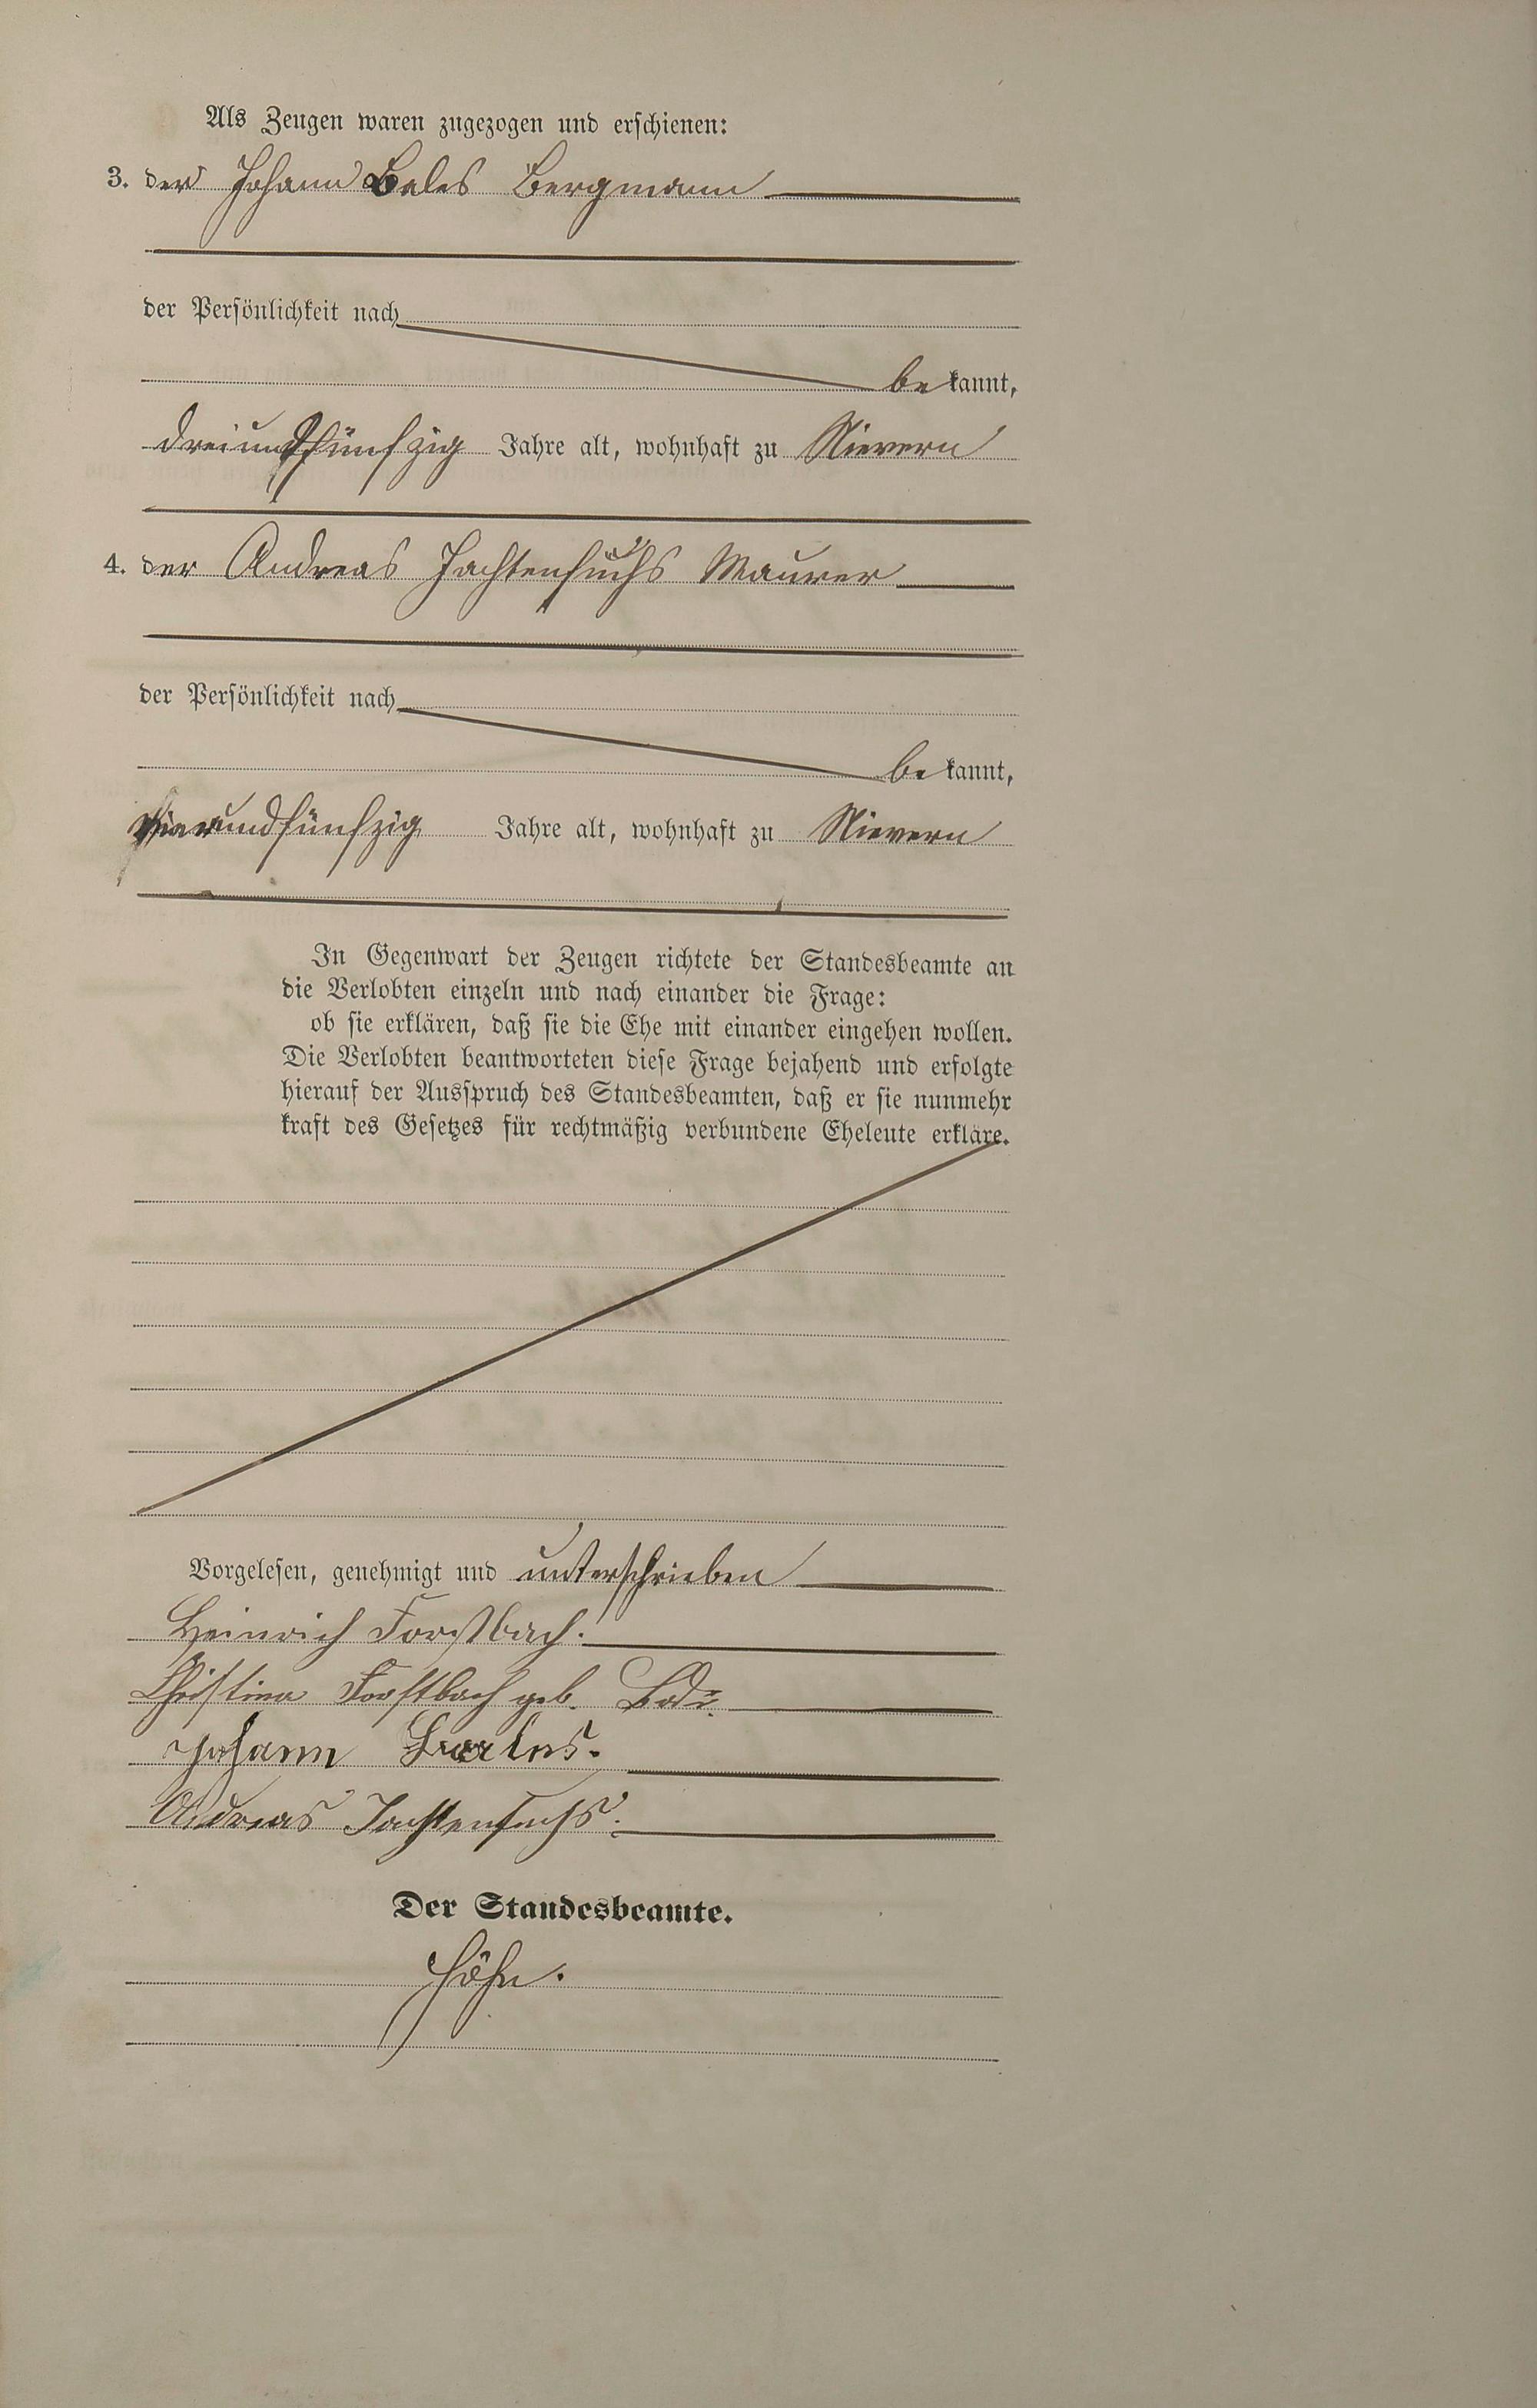 Als Zeugen waren zugezogen und erschienen:
3. der Johann Bales Bergmann
der Persönlichkeit nach
bekannt,
dreiundfünfzig Jahre alt, wohnhaft zu Nievern
4. der Andreas Jachtenfuchs Maurer
der Persönlichkeit nach
bekannt,
vierundfünfzig Jahre alt, wohnhaft zu Nievern
In Gegenwart der Zeugen richtete der Standesbeamte an
die Verlobten einzeln und nach einander die Frage:
ob sie erklären, daß sie die Ehe mit einander eingehen wollen.
Die Verlobten beantworteten diese Frage bejahend und erfolgte
hierauf der Ausspruch des Standesbeamten, daß er sie nunmehr
kraft des Gesetzes für rechtmäßig verbundene Eheleute erkläre.
Vorgelesen, genehmigt und unterschrieben
Heinrich Forstbach.
Christina Forstbach geb.
Johann
Andreas Jachtenfuchs.
Der Standesbeamte.
Höhn.